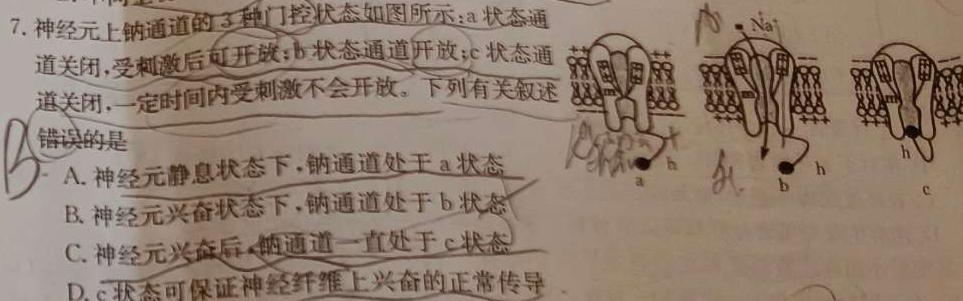 7. 神经元上钠通道的3种门控状态如图所示:a状态通
道关闭,受刺激后可开放;b状态通道开放;c状态通
道关闭,一定时间内受刺激不会开放。下列有关叙述
错误的是
A. 神经元静息状态下,钠通道处于a状态
B. 神经元兴奋状态下,钠通道处于b状态
C. 神经元兴奋后,钠通道一直处于c状态
D. c状态可保证神经纤维上兴奋的正常传导
B
Na+
h
a
h
b
h
c